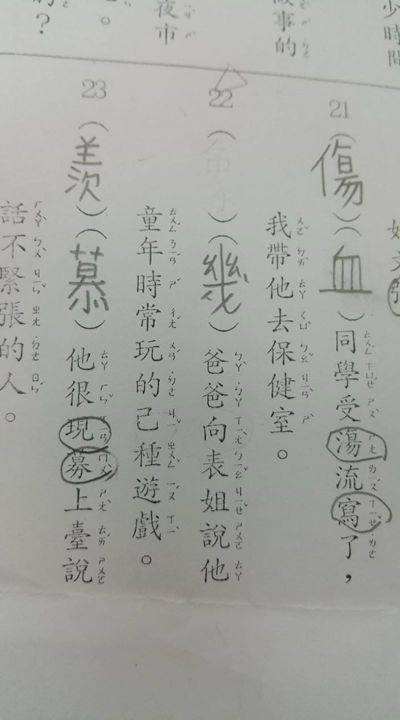 少時間
事的
夜市
。
？
21（傷）（血）同學受蕩流寫了，
我帶他去保健室。
22（　）（幾）爸爸向表姐說他
童年時常玩的己種遊戲。
23（羨）（慕）他很現募上臺說
話不緊張的人。